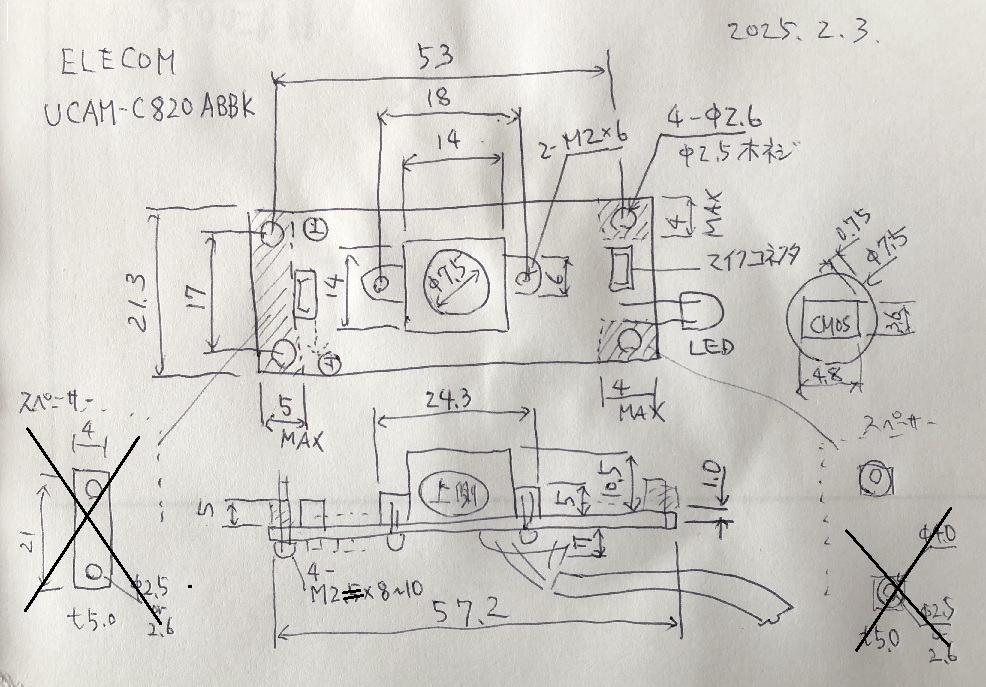 2025. 2. 3.
ELECOM
UCAM-C820ABBK
53
18
14
2-M2×6
4-Φ2.6
Φ2.5木ネジ
4
MAX
21.3
17
14
Φ7.5
6
マイクコネクタ
LED
0.75
Φ7.5
CMOS
3.6
4.8
5
MAX
4
MAX
24.3
スペーサー
4
21
Φ2.5
or
2.6
t5.0
5
上側
5
10.5
1.0
4-
M2×8~10
57.2
スペーサー
Φ4.0
Φ2.5
2.6
t5.0